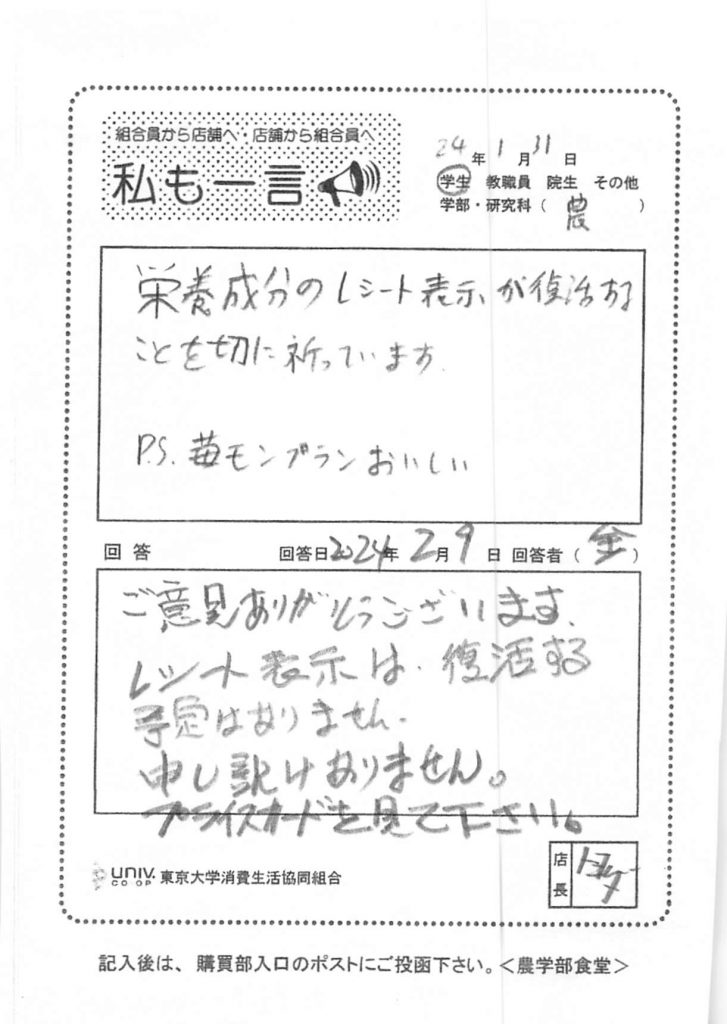 組合員から店舗へ・店舗から組合員へ
私も一言
24年1月31日
学生 教職員 院生 その他
学部・研究科（農）
栄養成分のレシート表示が復活する
ことを切に祈っています.
P.S. 苺モンブランおいしい
回答 回答日2024年2月9日 回答者（金）
ご意見ありがとうございます.
レシート表示は. 復活する
予定はありません.
申し訳けありません。
プライスカードを見て下さい。
UNIV. CO-OP 東京大学消費生活協同組合
店長
記入後は、購買部入口のポストにご投函下さい。＜農学部食堂＞